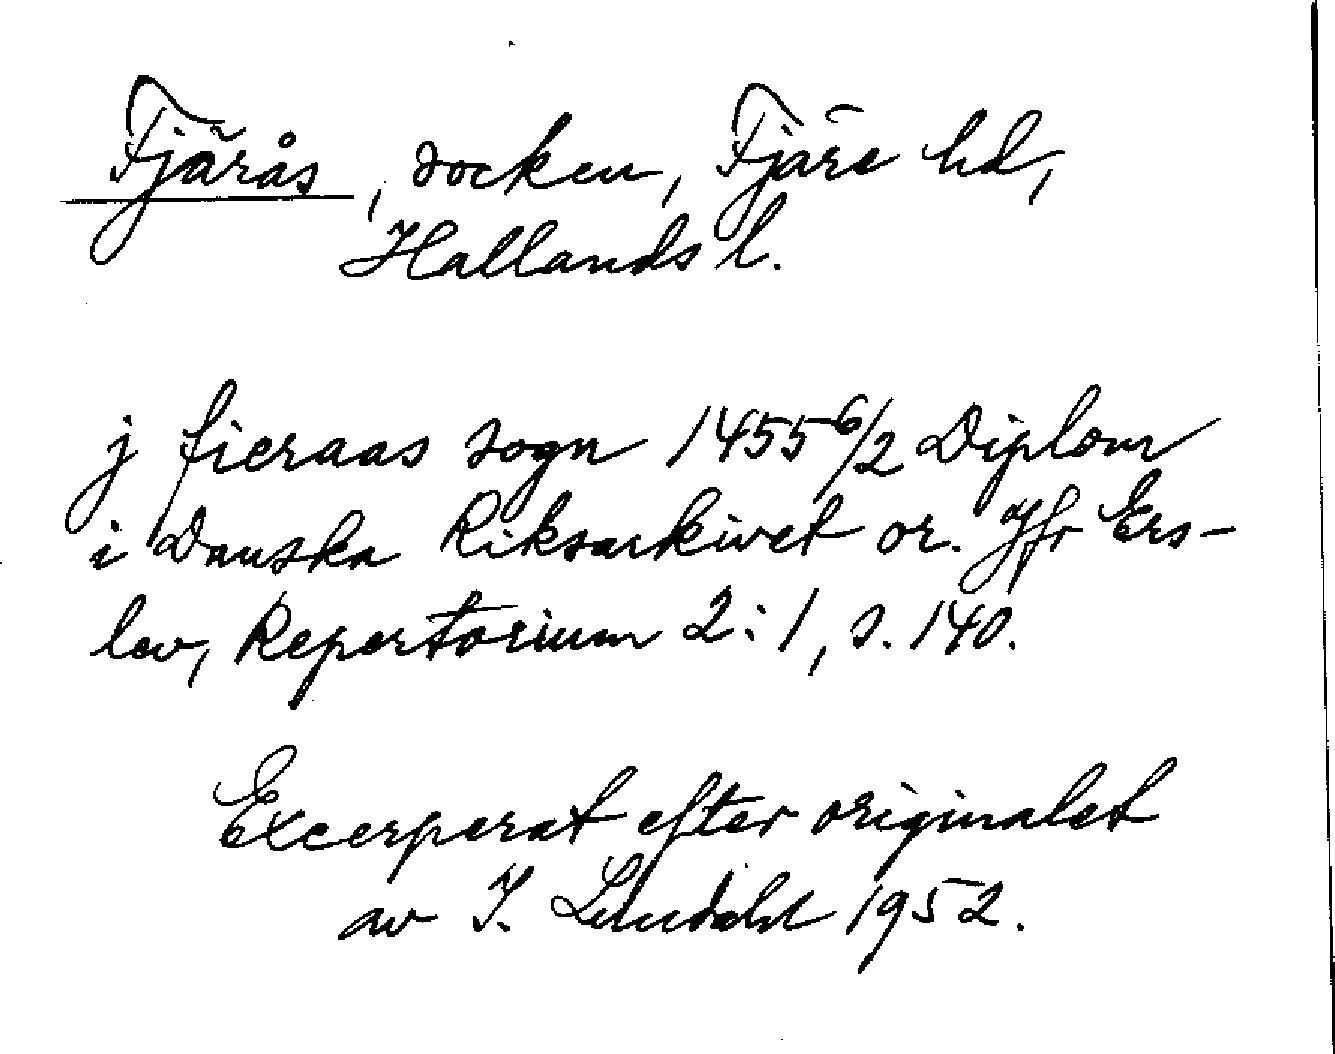 Fjärås, socken, Fjäre hd,
Hallands l.
j fieraas sogn 1455 6/2 Diplom
i Danska Riksarkivet or. Jfr Ers-
lev, Repertorium 2:1, s. 140.
Excerperat efter originalet
av I. Lindahl 1952.